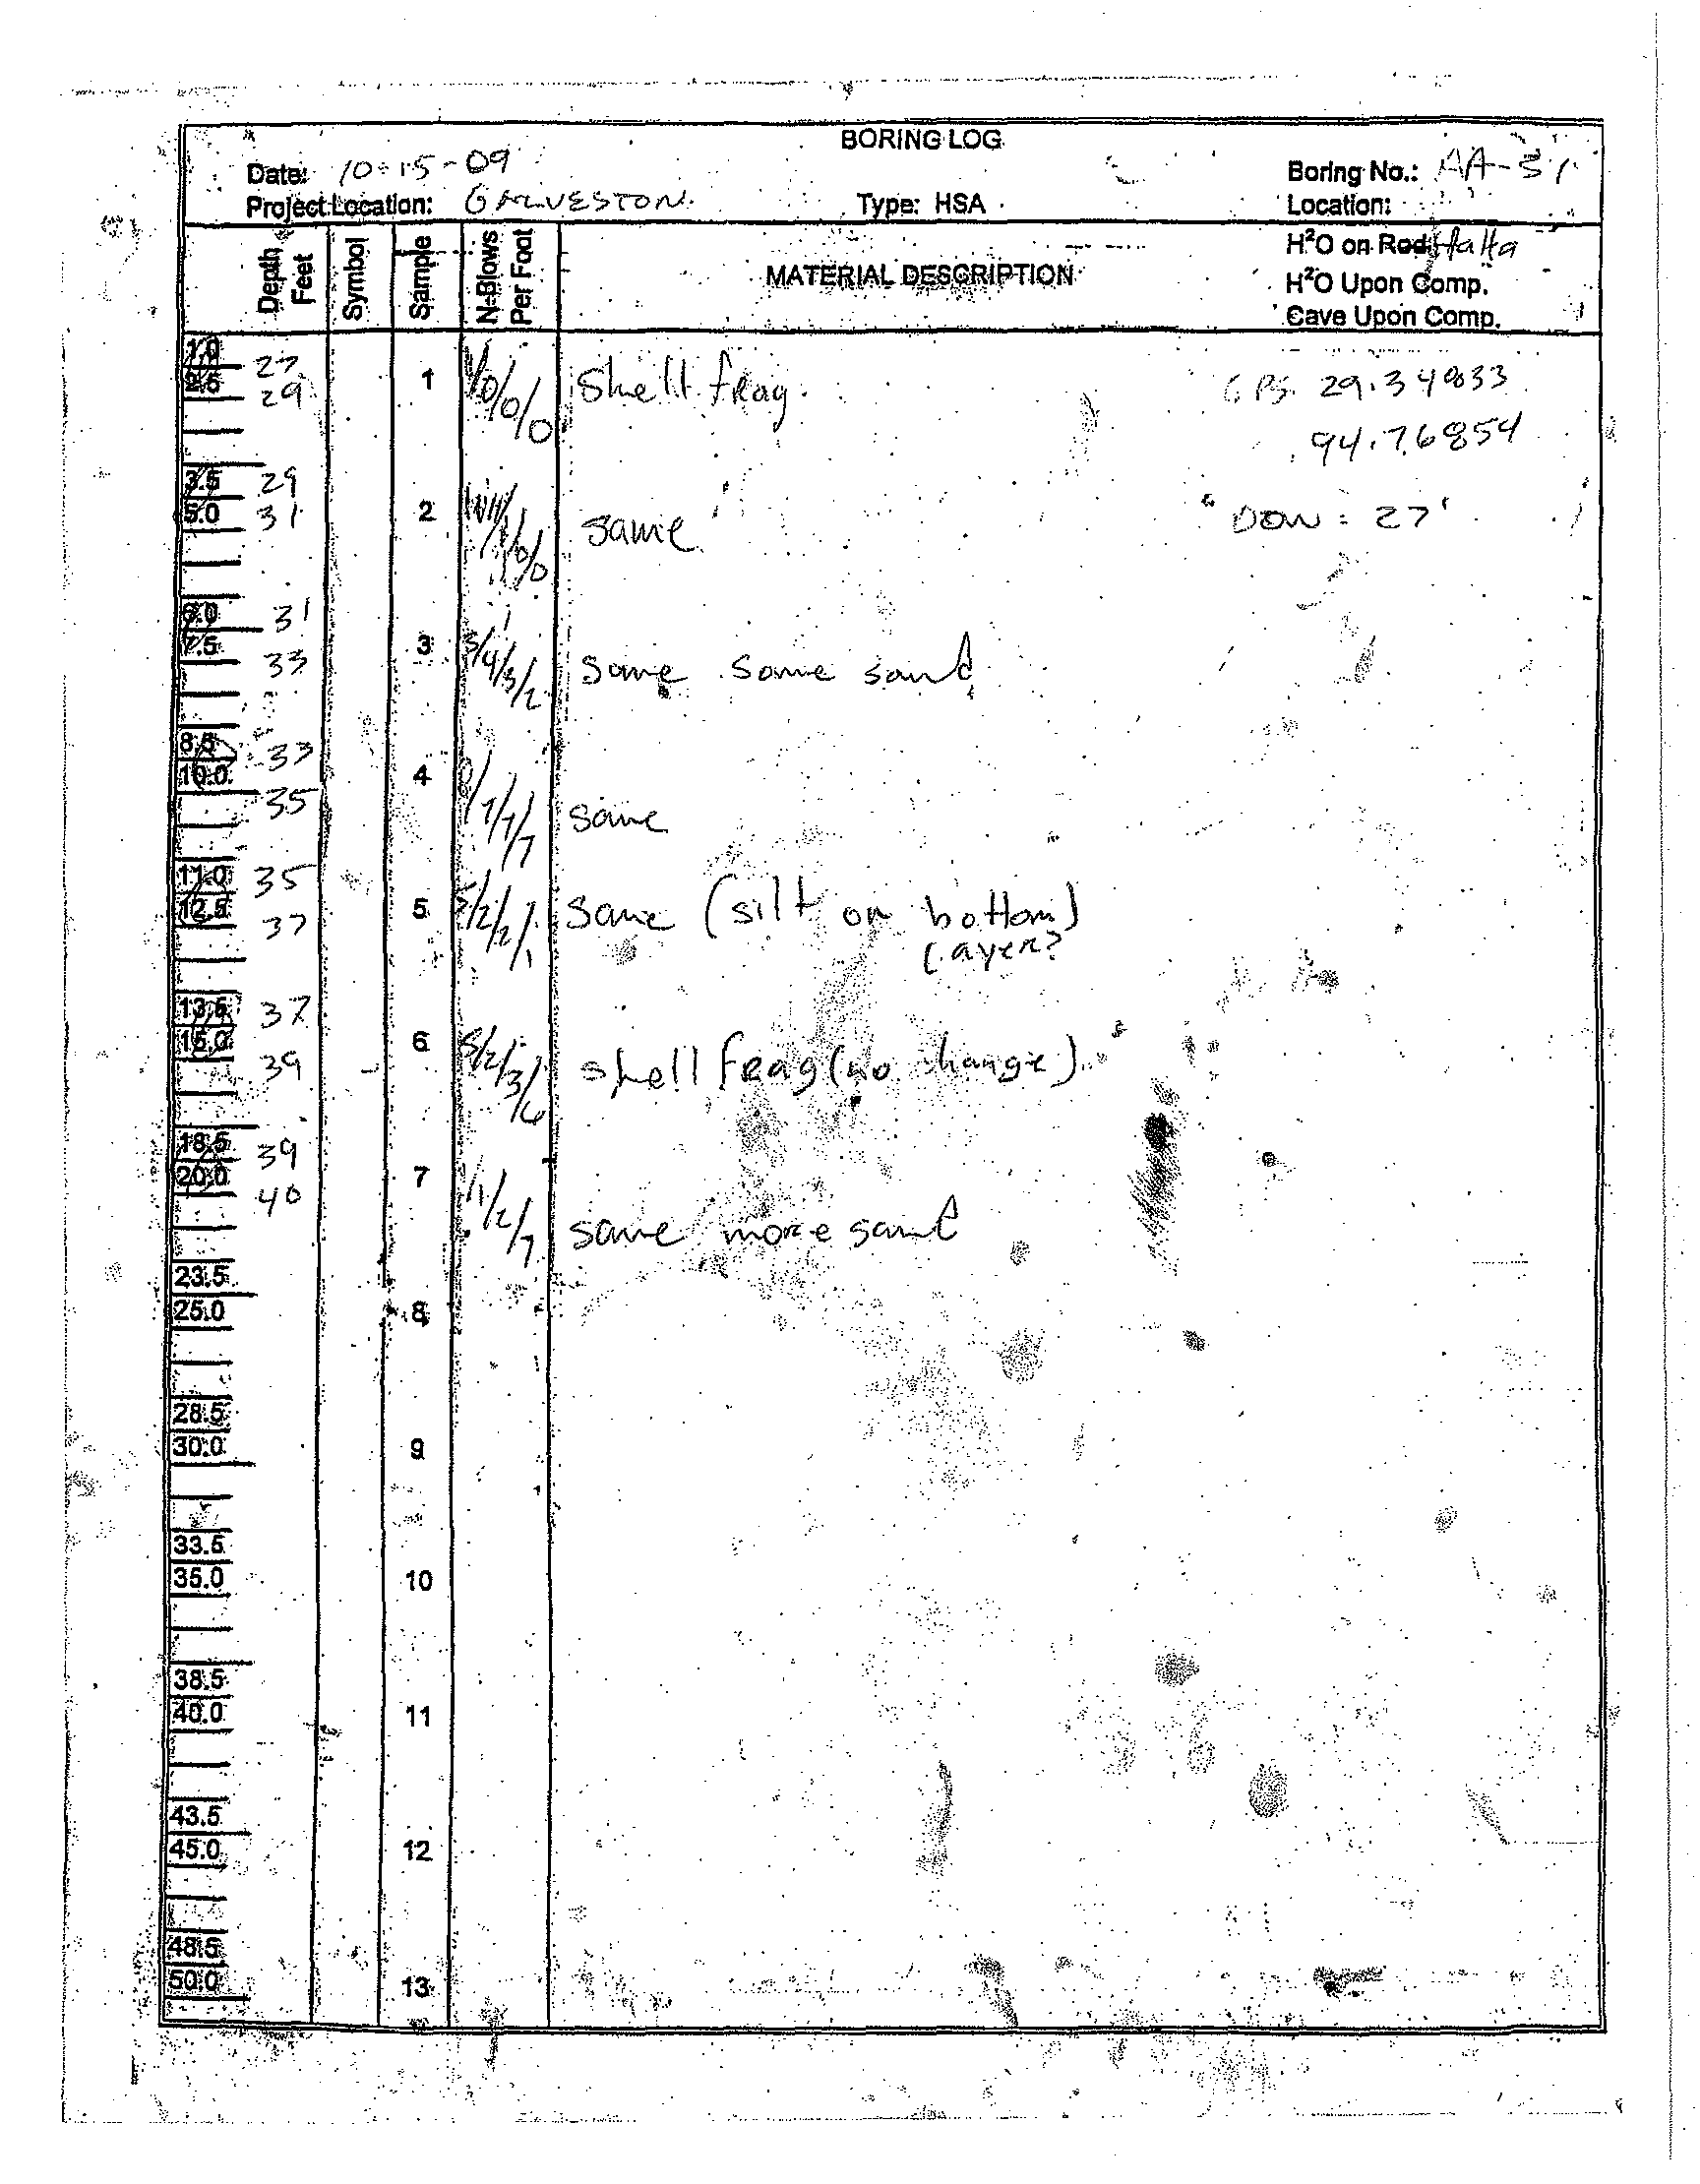 BORING LOG
Date: 10-15-09
Boring No.: AA-51
Project Location: GALVESTON
Type: HSA
Location:
Depth Feet
Symbol
Sample
N-Blows Per Foot
MATERIAL DESCRIPTION
H²O on Rod
H²O Upon Comp.
Cave Upon Comp.
1.0 27
2.5 29 1 /0/0/0 Shell frag. GPS 29.34833
94.76854
3.5 29
5.0 31 2 WH/1/0/0 same DOW = 27'
6.0 31
7.5 33 3 3/4/3/2 same some sand
8.5 33
10.0 35 4 8/7/7/7 same
11.0 35
12.5 37 5 5/2/2/1 same (silt on bottom)
Layer?
13.5 37
15.0 39 6 5/2/3/6 shell frag (no change)
18.5 39
20.0 40 7 1/1/2/7 same more sand
23.5
25.0 8
28.5
30.0 9
33.5
35.0 10
38.5
40.0 11
43.5
45.0 12
48.5
50.0 13